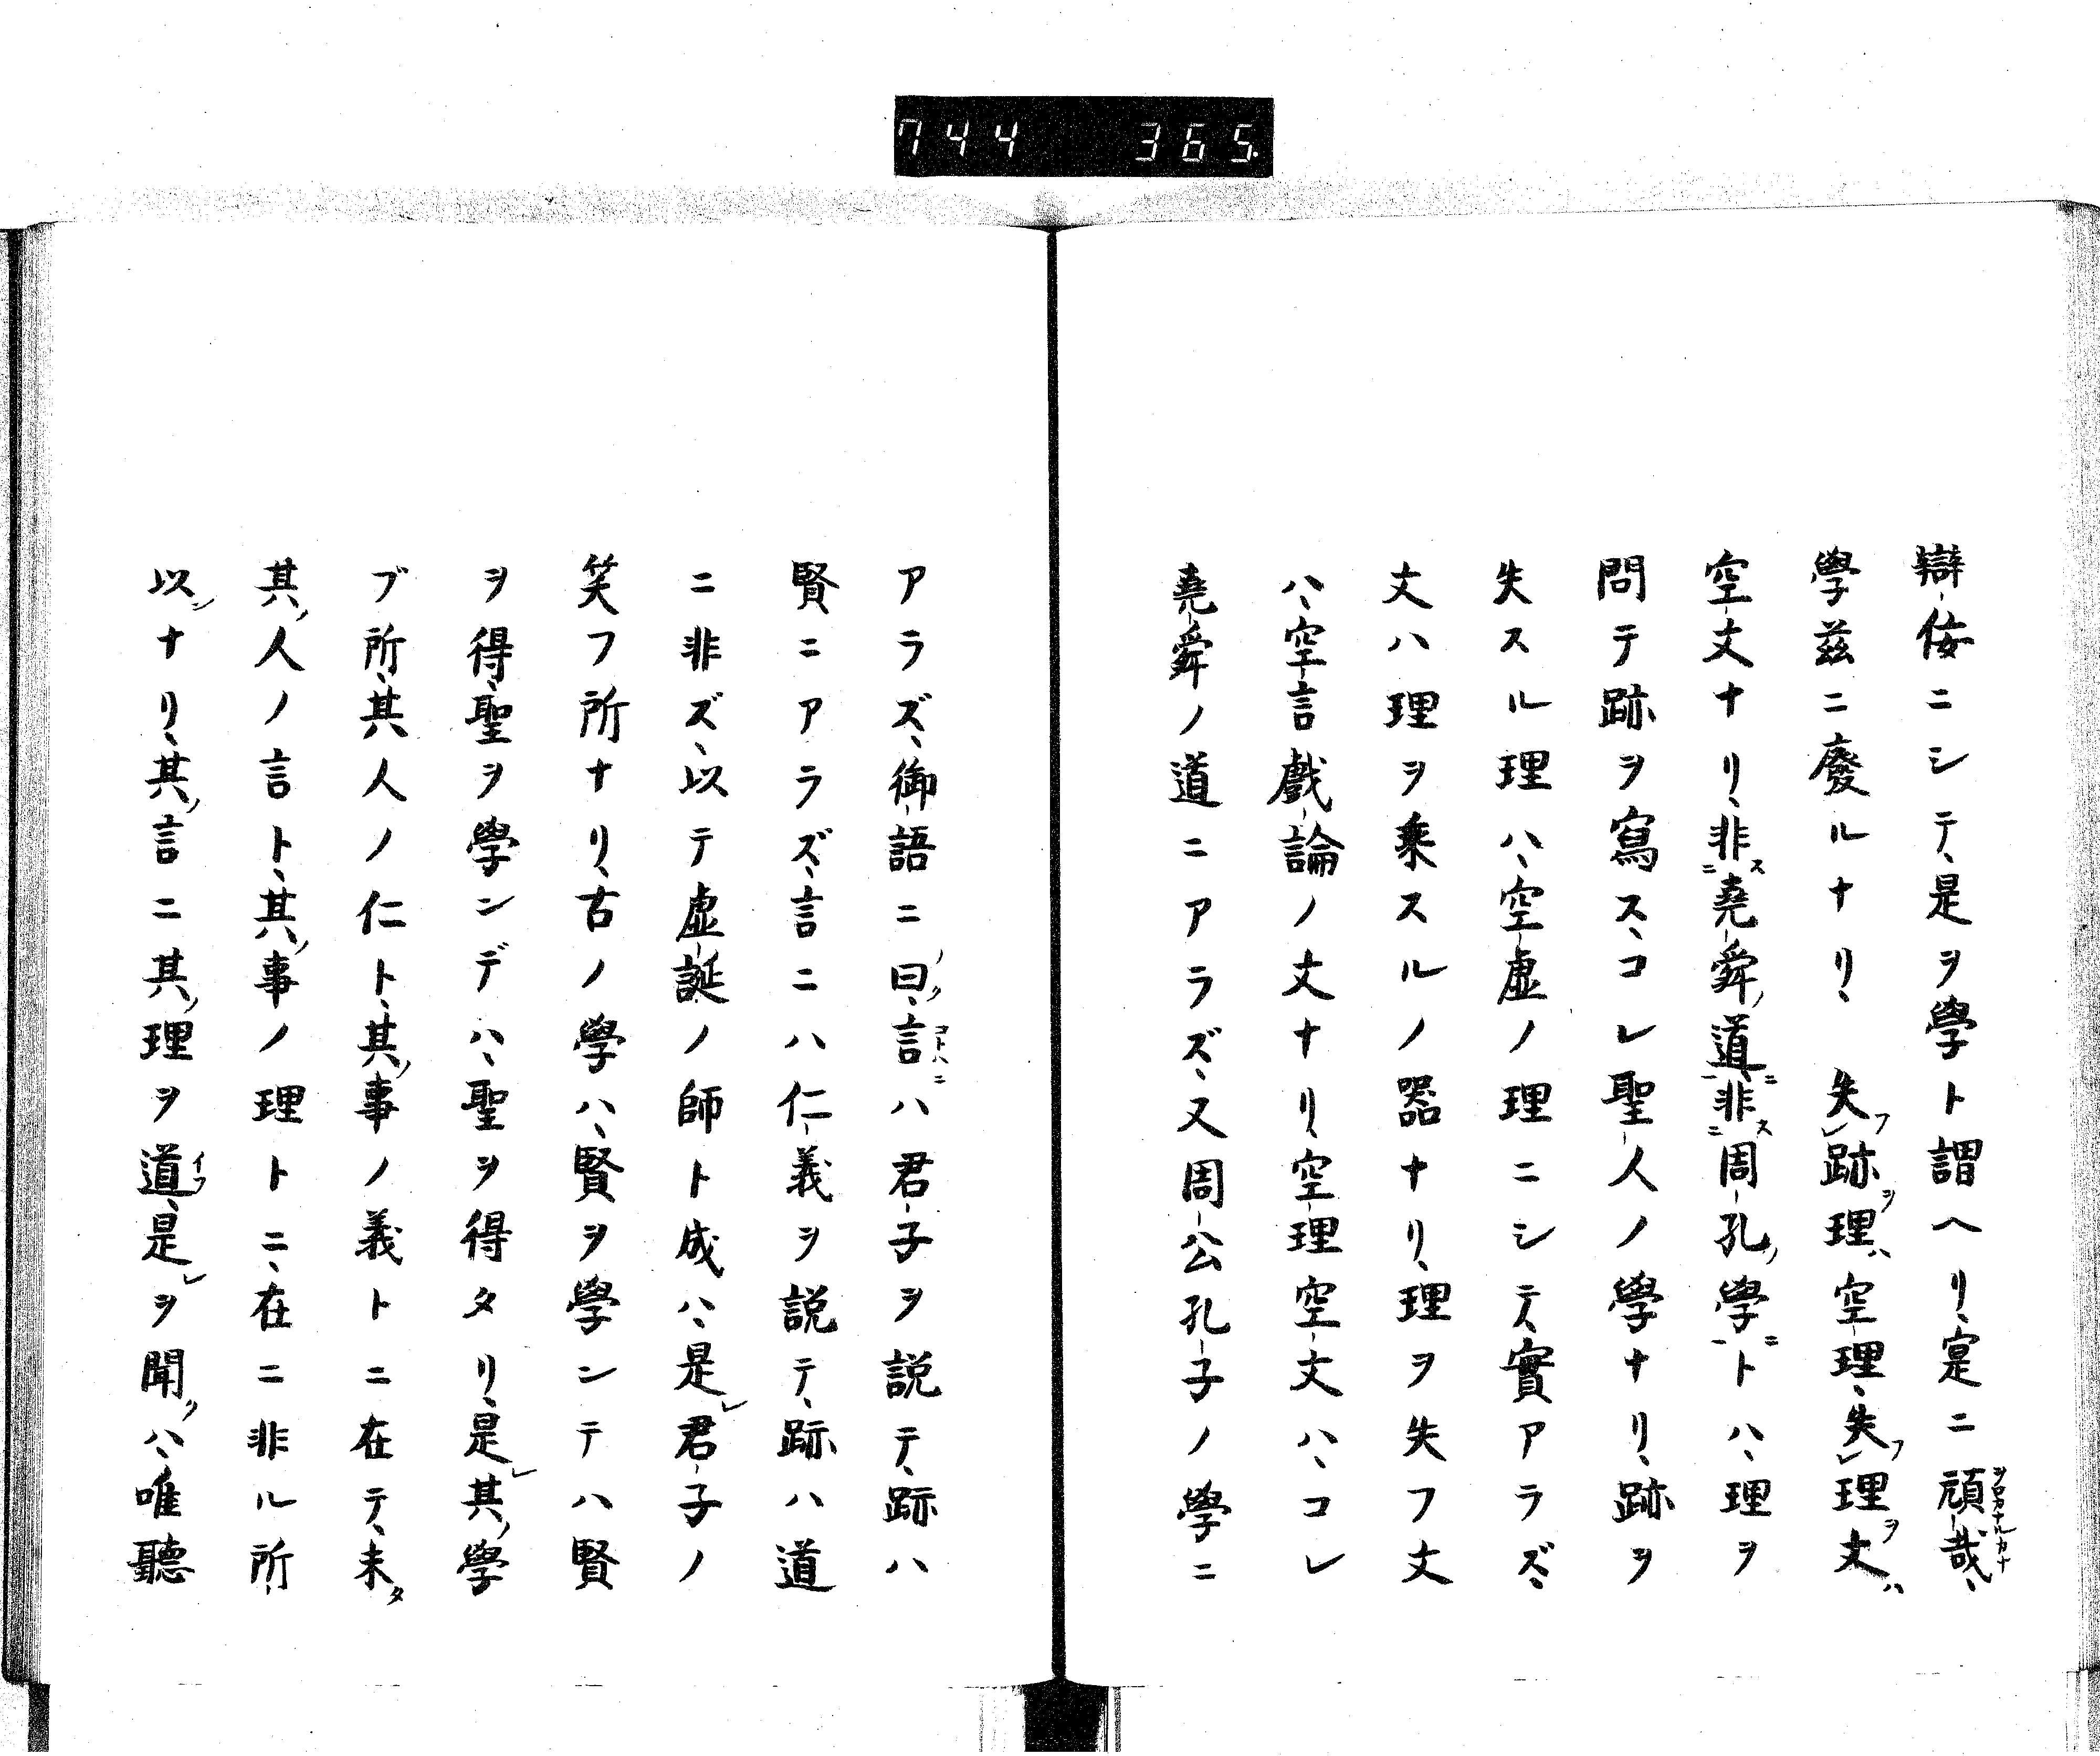 744 365
辯侫ニシテ、是ヲ學ト謂ヘリ、寔ニ頑哉、
學茲ニ廢ルナリ、失跡理空理、失理文
空文ナリ、非堯舜道、非周孔學トハ、理ヲ
問テ跡ヲ寫ス、コレ聖人ノ學ナリ、跡ヲ
失スル理ハ、空虚ノ理ニシテ、實アラズ、
文ハ理ヲ乘スルノ器ナリ、理ヲ失フ文
ハ、空言戲論ノ文ナリ、空理空文ハ、コレ
堯舜ノ道ニアラズ、又周公孔子ノ學ニ
アラズ、御語ニ曰、言ハ君子ヲ説テ、跡ハ
賢ニアラズ、言ニハ仁義ヲ説テ、跡ハ道
ニ非ズ、以テ虚誕ノ師ト成ハ、是君子ノ
笑フ所ナリ、古ノ學ハ、賢ヲ學ンテハ賢
ヲ得、聖ヲ學ンデハ、聖ヲ得タリ、是其學
ブ所、其人ノ仁ト、其事ノ義トニ在テ、未
其人ノ言ト、其事ノ理トニ、在ニ非ル所
以ナリ、其言ニ其理ヲ道、是ヲ聞ハ、唯聽